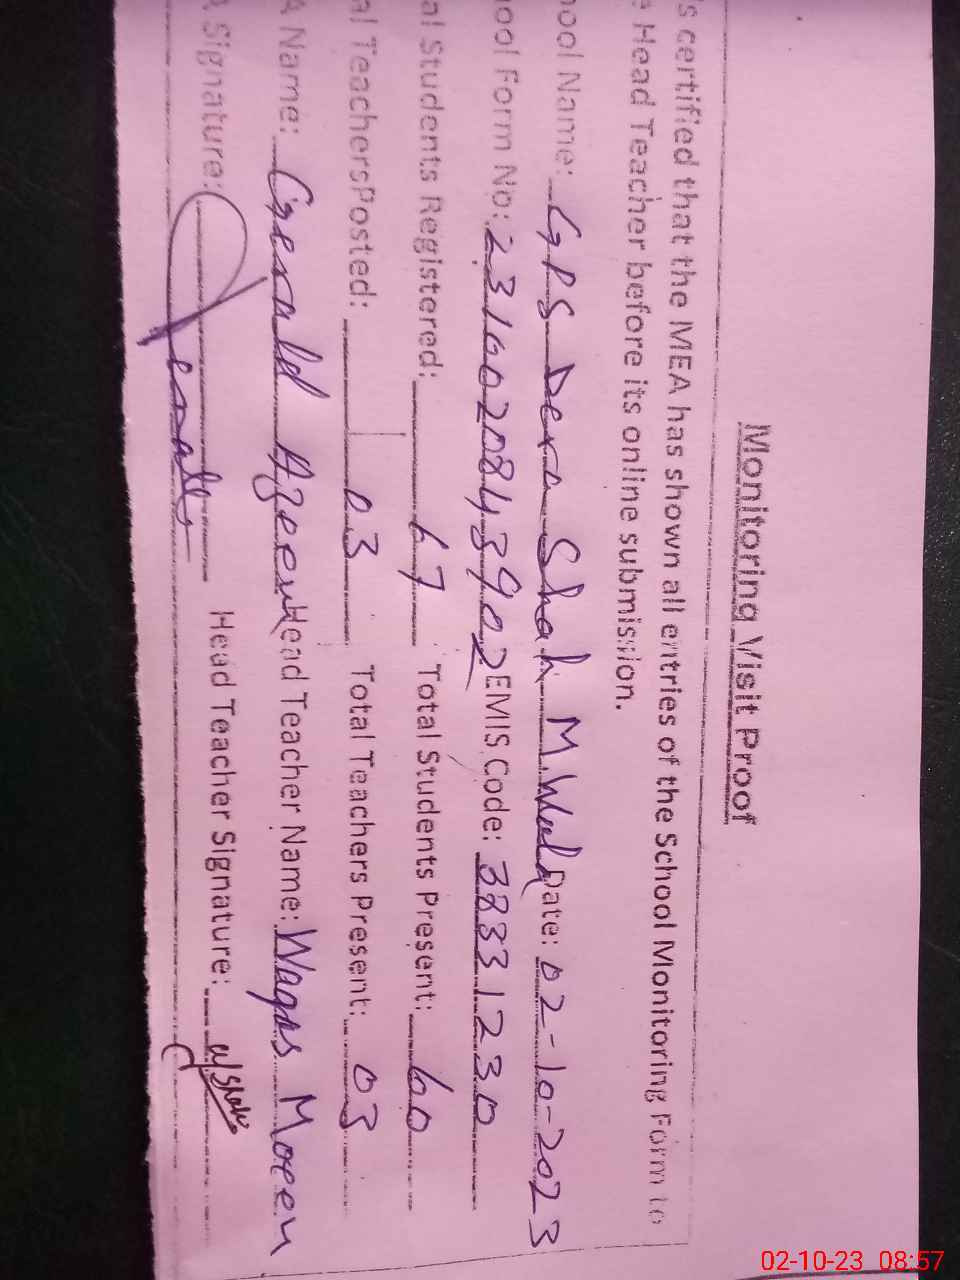 Monitoring Visit Proof
's certified that the MEA has shown all entries of the School Monitoring Form to
e Head Teacher before its online submission.
ool Name: GPS Dera Shah M.Wala Date: 02-10-2023
ool Form No: 2310020843902 EMIS Code: 38331230
al Students Registered: 67 Total Students Present: 60
al TeachersPosted: 03 Total Teachers Present: 03
A Name: Gerald Azeem Head Teacher Name: Waqas Moeen
A Signature: Gerald Head Teacher Signature:
02-10-23 08:57